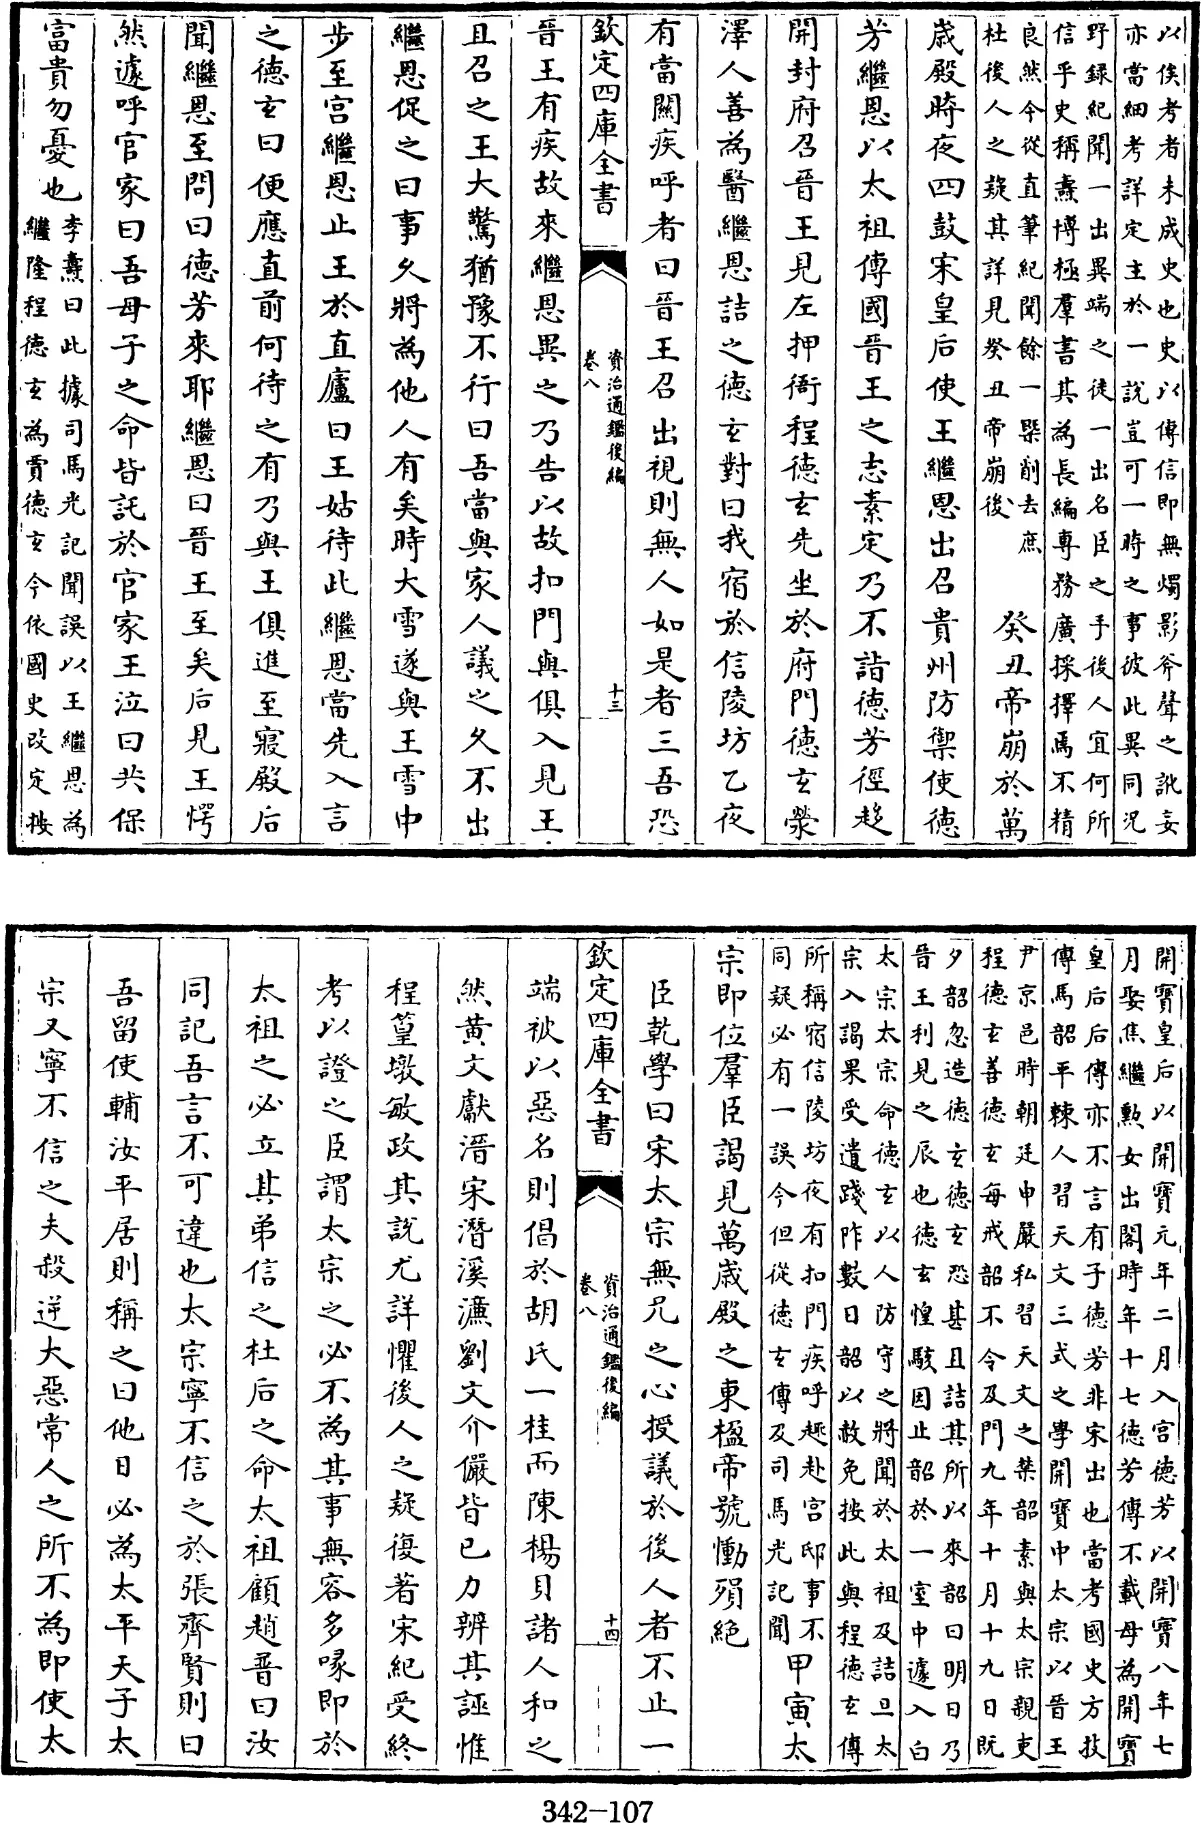 以俟考者未成史也史以傳信即無燭影斧聲之訛妄
亦當細考詳定主於一說豈可一時之事彼此異同況
野録紀聞一出異端之徒一出名臣之手後人宜何所
信乎史稱燾博極羣書其為長編專務廣採擇焉不精
良然今從直筆紀聞餘一槩削去庶
杜後人之疑其詳見癸丑帝崩後
癸丑帝崩於萬
歳殿時夜四鼓宋皇后使王繼恩出召貴州防禦使德
芳繼恩以太祖傳國晉王之志素定乃不詣德芳徑趍
開封府召晉王見左押衙程德玄先坐於府門德玄滎
澤人善為醫繼恩詰之德玄對曰我宿於信陵坊乙夜
有當關疾呼者曰晉王召出視則無人如是者三吾恐
欽定四庫全書
資治通鑑後編
卷八
十三
晉王有疾故來繼恩異之乃告以故扣門與俱入見王
且召之王大驚猶豫不行曰吾當與家人議之久不出
繼恩促之曰事久將為他人有矣時大雪遂與王雪中
步至宮繼恩止王於直廬曰王姑待此繼恩當先入言
之德玄曰便應直前何待之有乃與王俱進至寢殿后
聞繼恩至問曰德芳來耶繼恩曰晉王至矣后見王愕
然遽呼官家曰吾母子之命皆託於官家王泣曰共保
富貴勿憂也
李燾曰此據司馬光記聞誤以王繼恩為
繼隆程德玄為賈德玄今依國史改定按
開寶皇后以開寶元年二月入宮德芳以開寶八年七
月娶焦繼勲女出閣時年十七德芳傳不載母為開寶
皇后后傳亦不言有子德芳非宋出也當考國史方技
傳馬韶平棘人習天文三式之學開寶中太宗以晉王
尹京邑時朝廷申嚴私習天文之禁韶素與太宗親吏
程德玄善德玄每戒韶不令及門九年十月十九日既
夕韶忽造德玄德玄恐甚且詰其所以來韶曰明日乃
晉王利見之辰也德玄惶駭因止韶於一室中遽入白
太宗太宗命德玄以人防守之將聞於太祖及詰旦太
宗入謁果受遺踐阼數日韶以赦免按此與程德玄傳
所稱宿信陵坊夜有扣門疾呼趣赴宮邸事不
同疑必有一誤今但從德玄傳及司馬光記聞
甲寅太
宗即位羣臣謁見萬歳殿之東楹帝號慟殞絕
臣乾學曰宋太宗無兄之心授議於後人者不止一
欽定四庫全書
資治通鑑後編
卷八
十四
端被以惡名則倡於胡氏一桂而陳楊貝諸人和之
然黄文獻溍宋潛溪濂劉文介儼皆已力辨其誣惟
程篁墩敏政其說尤詳懼後人之疑復著宋紀受終
考以證之臣謂太宗之必不為其事無容多喙即於
太祖之必立其弟信之杜后之命太祖顧趙普曰汝
同記吾言不可違也太宗寧不信之於張齊賢則曰
吾留使輔汝平居則稱之曰他日必為太平天子太
宗又寧不信之夫殺逆大惡常人之所不為即使太
342-107